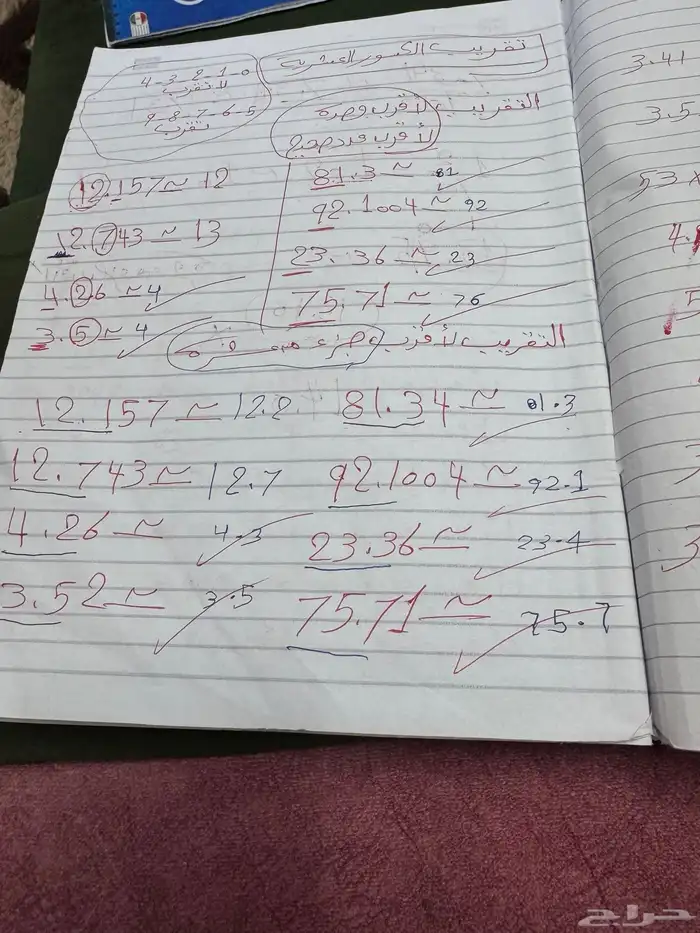 تقريب الكسور العشرية
0-1-2-3-4
لا تقرب
5-6-7-8-9
تقرب
التقريب لأقرب وحدة
لأقرب عدد صحيح
81.3 ≃ 81
92.1004 ≃ 92
23.36 ≃ 23
75.71 ≃ 76
12.157 ≃ 12
12.743 ≃ 13
4.26 ≃ 4
3.5 ≃ 4
التقريب لأقرب جزء من عشرة
81.34 ≃ 81.3
92.1004 ≃ 92.1
23.36 ≃ 23.4
75.71 ≃ 75.7
12.157 ≃ 12.2
12.743 ≃ 12.7
4.26 ≃ 4.3
3.52 ≃ 3.5
3.41
3.5
53
حراج